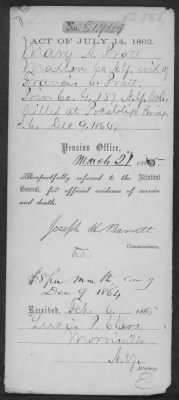 No. 81,969
ACT OF JULY 14, 1862.
Mary A. Pratt
Madison Co. N.Y. wid. of
Francis C. Pratt
Priv. Co. G, 157 N.Y. Vols.
Killed at Pocotaligo Bridge
S.C. Dec 9, 1864.
Pension Office,
March 21 1865
Respectfully referred to the Adjutant
General, for official evidence of service
and death.
Joseph H Barrett
Commissioner.
$8 per month
Dec 9 1864
Received, Feb. 6, 1865
P.
Morrisville
N.Y.
Attorney.